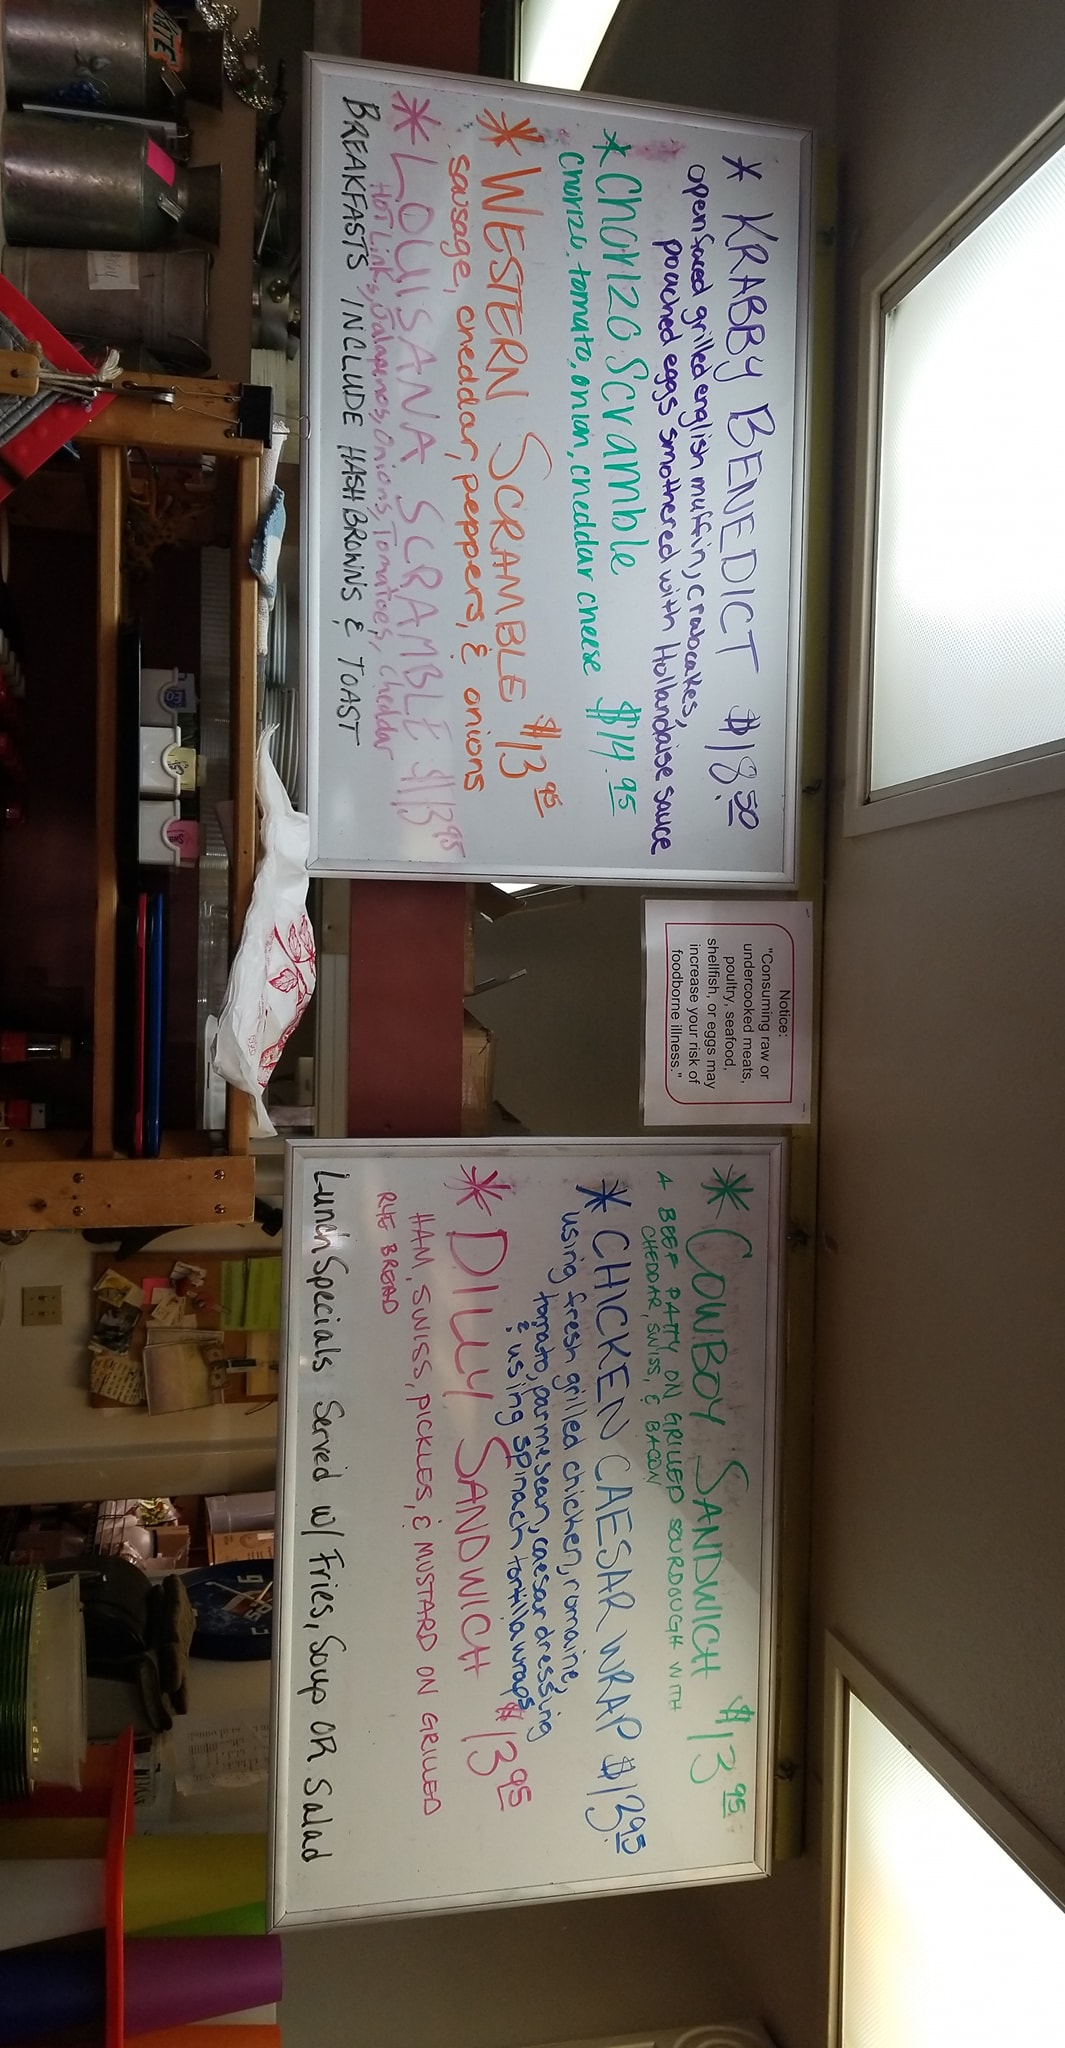 * KRABBY BENEDICT $18.50
open faced grilled english muffin, crabcakes,
poached eggs smothered with Hollandaise sauce
* Chorizo Scramble $14.95
chorizo, tomato, onion, cheddar cheese
* WESTERN SCRAMBLE $13.95
sausage, cheddar, peppers, & onions
* LOUISANA SCRAMBLE $13.95
Hot Links, Jalapenos, Onions, Tomatoes, Cheddar
BREAKFASTS INCLUDE HASHBROWNS & TOAST
Notice:
"Consuming raw or
undercooked meats,
poultry, seafood,
shellfish, or eggs may
increase your risk of
foodborne illness."
* COWBOY SANDWICH $13.95
A BEEF PATTY ON GRILLED SOURDOUGH WITH
CHEDDAR, SWISS, & BACON
* CHICKEN CAESAR WRAP $13.95
using fresh grilled chicken, romaine,
tomato, parmesean, caesar dressing
& using spinach tortilla wraps
* DILLY SANDWICH $13.95
HAM, SWISS, PICKLES, & MUSTARD ON GRILLED
RYE BREAD
Lunch Specials Served w/ Fries, Soup OR Salad